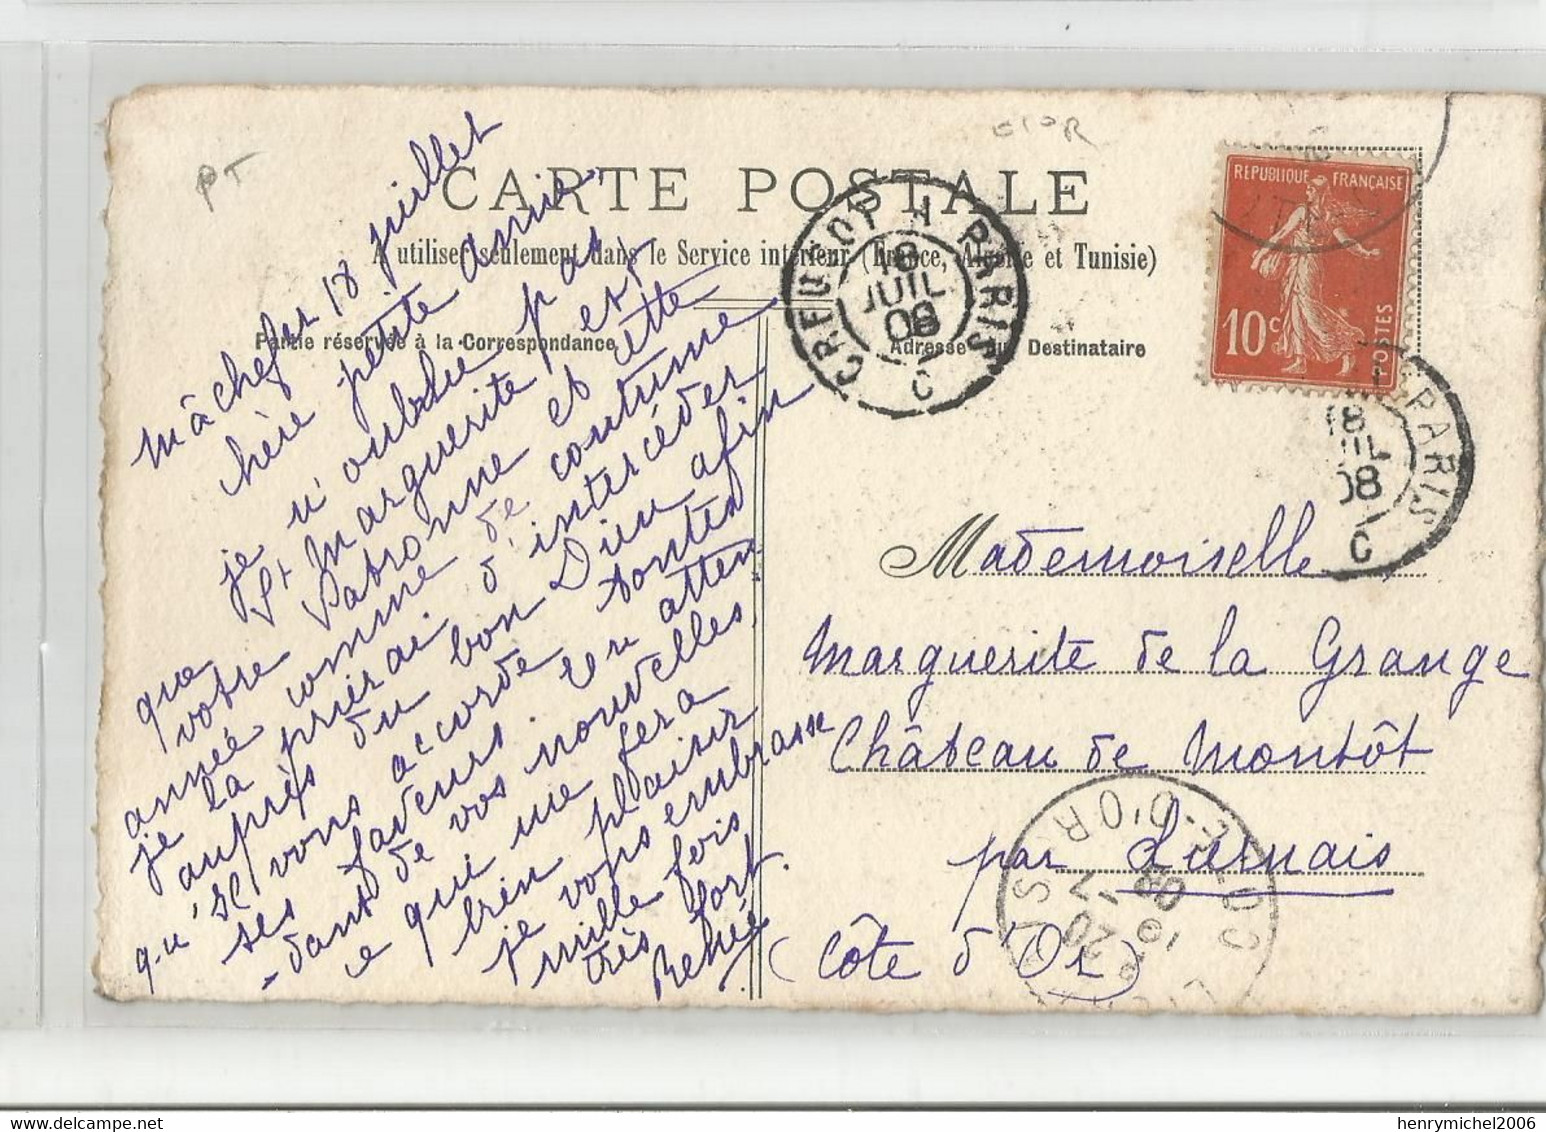 PT
CARTE POSTALE
A utiliser seulement dans le Service intérieur (France, Algérie et Tunisie)
Partie réservée à la Correspondance
Adresse du Destinataire
REPUBLIQUE FRANÇAISE
10c
POSTES
CREUSOT A PARIS
18
JUIL
08
C
PARIS
18
JUIL
08
C
COTE-D'OR
20
7
08
Mâchefer 18 juillet
hère petite amie,
je n'oublie pas
que Ste Marguerite est
votre Patronne et cette
année comme de coutume
je la prierai d'intercéder
auprès du bon Dieu afin
qu'il vous accorde toutes
ses faveurs. en atten
-dant de vos nouvelles
ce qui me fera
bien plaisir
je vous embrasse
mille fois
très fort.
Renée
Mademoiselle
Marguerite de la Grange
Château de Montôt
par Larnais
(Côte d'Or)
henrymichel2006